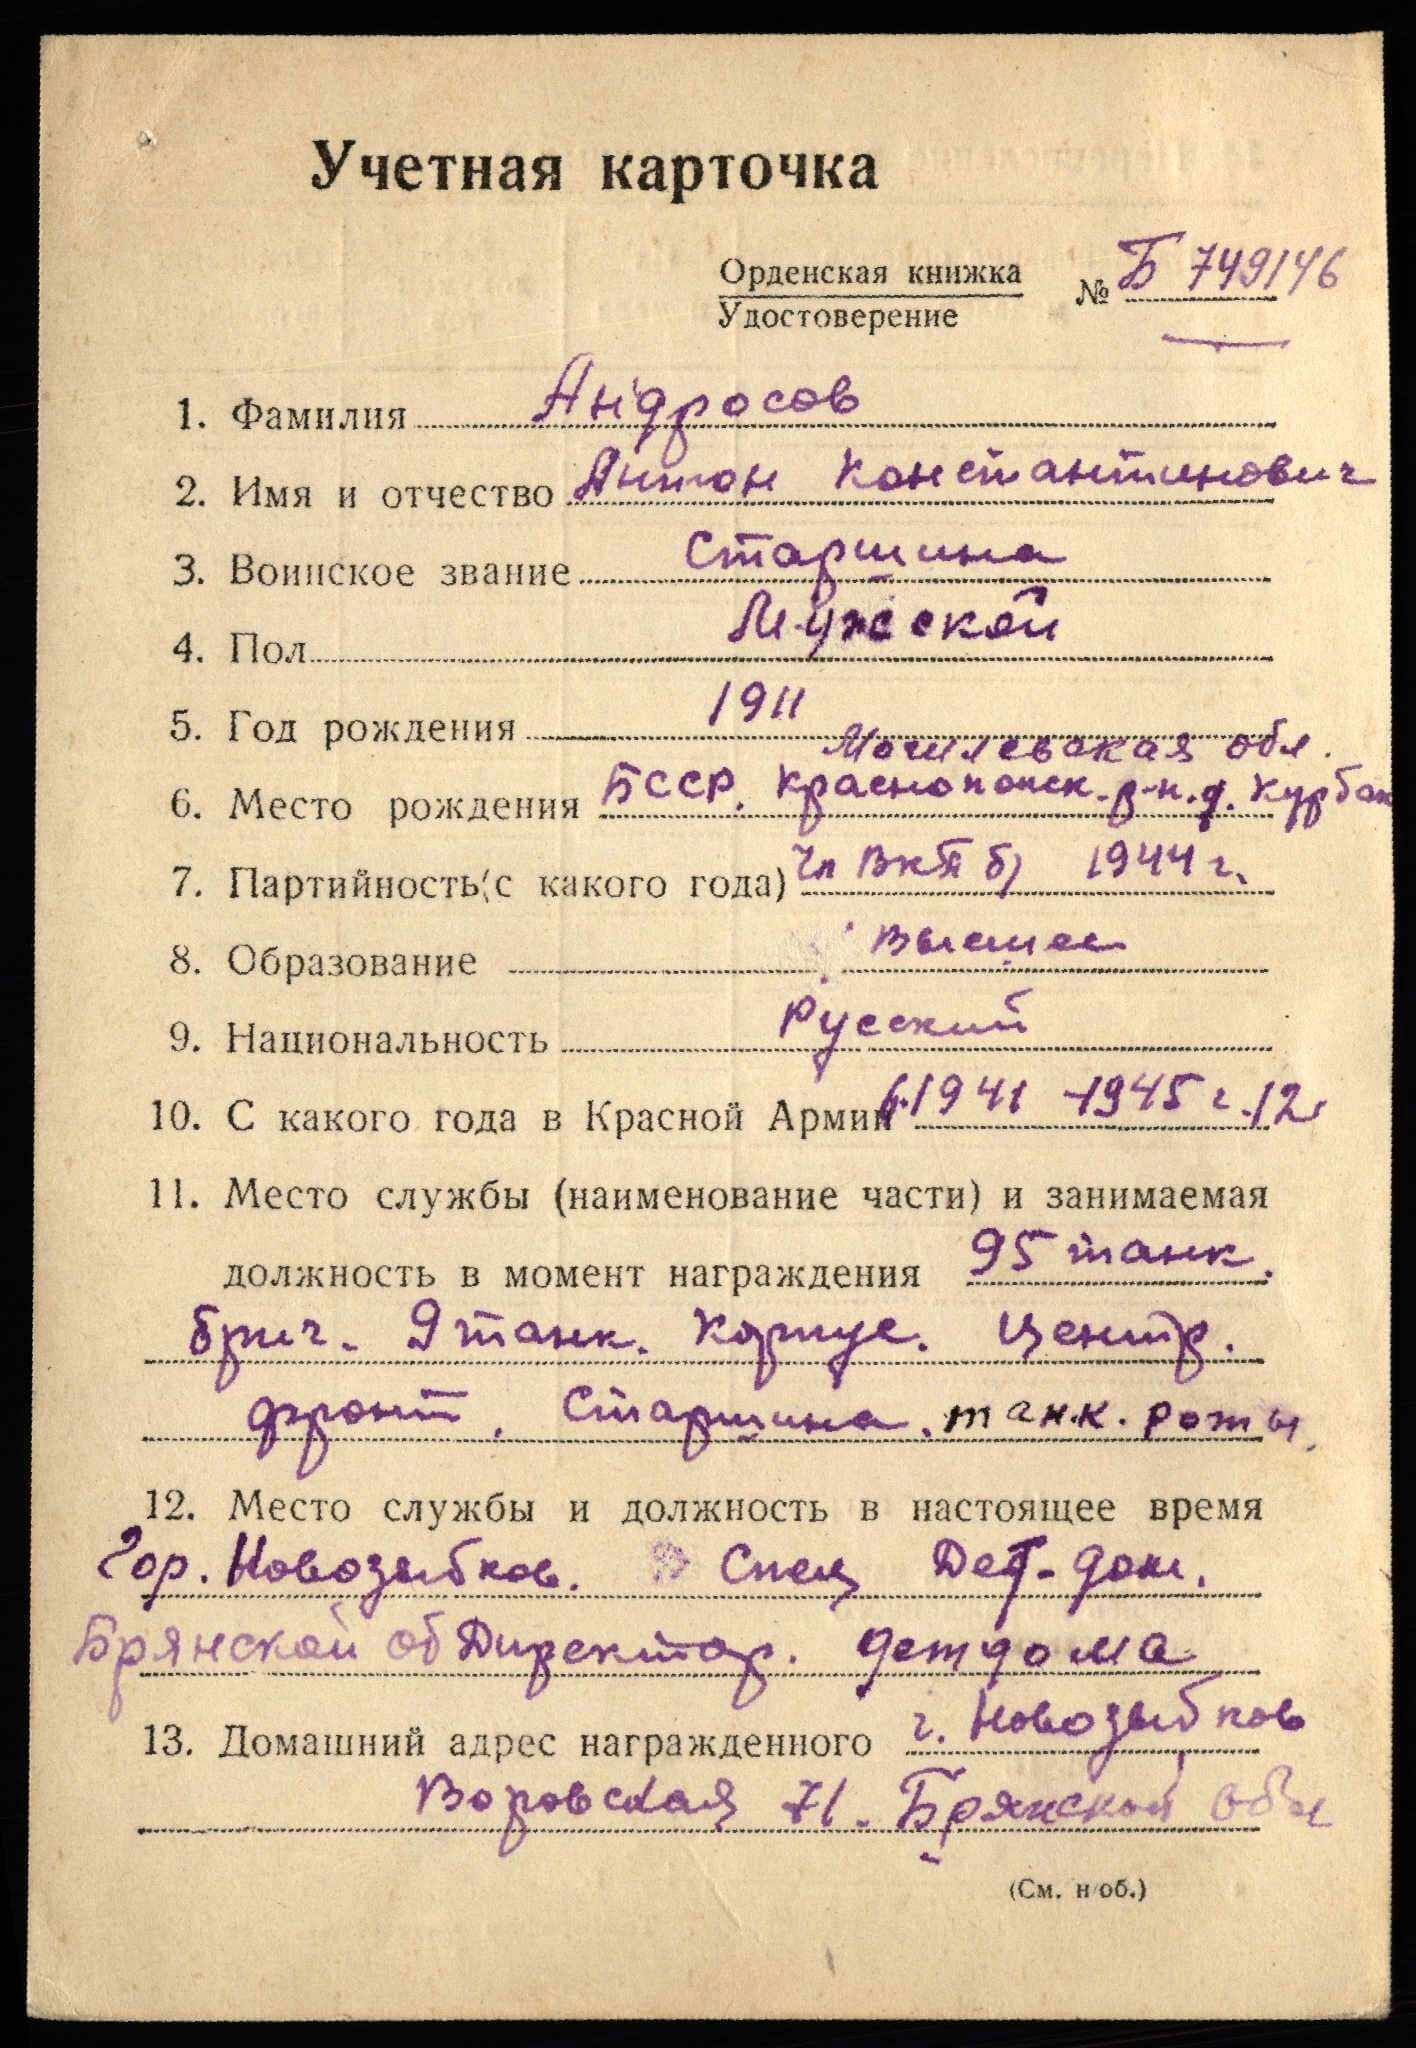 Учетная карточка
Орденская книжка
Удостоверение
№ Б 749146
1. Фамилия Андросов
2. Имя и отчество Антон Константинович
3. Воинское звание Старшина
4. Пол Мужской
5. Год рождения 1911
Могилевская обл.
6. Место рождения БССР. Краснопольск. р-н. д. Курбак
7. Партийность (с какого года) Чл ВКП б) 1944 г.
8. Образование Высшее
9. Национальность Русский
10. С какого года в Красной Армии 1941 - 1945 г. 12
11. Место службы (наименование части) и занимаемая
должность в момент награждения 95 танк.
бриг. 9 танк. Корпус. Центр.
фронт. Старшина. танк. роты.
12. Место службы и должность в настоящее время
Гор. Новозыбков. Спец Дет-дом.
Брянской об Директор. детдома
13. Домашний адрес награжденного г. Новозыбков
Воровская 71. Брянской обл
(См. н/об.)